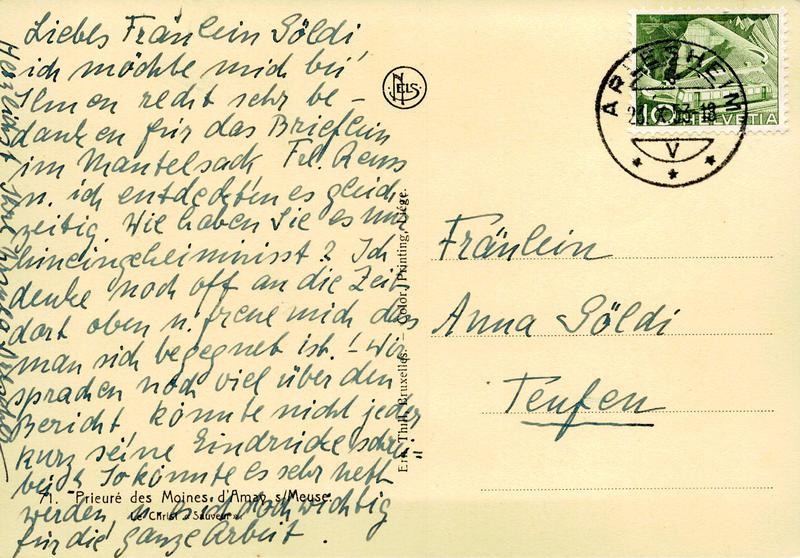 Liebes Fräulein Göldi
ich möchte mich bei
Ihnen recht sehr be-
danken für das Brieflein
im Mantelsack. Frl. Reuss
u. ich entdeckten es gleich
zeitig. Wie haben Sie es nur
hineingeheimnisst? Ich
denke noch oft an die Zeit
dort oben u. freue mich dass
man sich begegnet ist! Wir
sprachen noch viel über den
Bericht. Könnte nicht jeder
kurz seine Eindrücke schrei-
ben? So könnte es sehr nett
werden u. doch wichtig
für die ganze Arbeit.
Herzlichst Ihre
NELS
Ern. Thill, Bruxelles. — Color. Printing, Liége.
71. Prieuré des Moines d'Amay s/Meuse.
Le Christ « Sauveur ».
ARLESHEIM
53-18
V
10 HELVETIA
Fräulein
Anna Göldi
Teufen